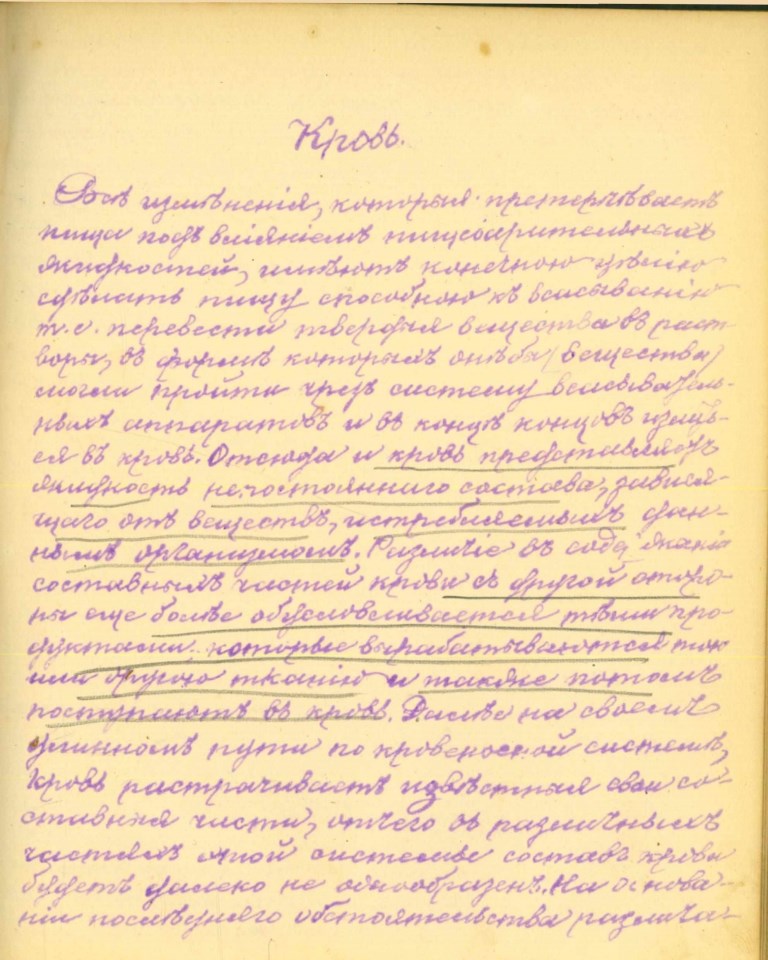 Кровь.
Всѣ измѣненія, которыя претерпѣваетъ
пища подъ вліяніемъ пищеварительныхъ
жидкостей, имѣютъ конечною цѣлію
сдѣлать пищу способною къ всасыванію
т.е. перевести твердыя вещества въ раст-
воры, въ формѣ которыхъ онѣ бы (вещества)
могли пройти чрезъ систему всасыватель-
ныхъ аппаратовъ и въ концѣ концовъ
ся въ кровь. Отсюда и кровь представляетъ
жидкость непостояннаго состава, завися-
щаго отъ веществъ, истребляемыхъ дан-
нымъ организмомъ. Различіе въ содержаніи
составныхъ частей крови съ другой сторо-
ны еще болѣе обусловливается тѣми про-
дуктами которые вырабатываются тою
или другою тканію и также потомъ
поступаютъ въ кровь. Далѣе на своемъ
длинномъ пути по кровеносной системѣ,
кровь растрачиваетъ извѣстныя свои со-
ставныя части, отчего въ различныхъ
частяхъ этой системы составъ крови
будетъ далеко не однообразенъ. На основа-
ніи послѣдняго обстоятельства различа-